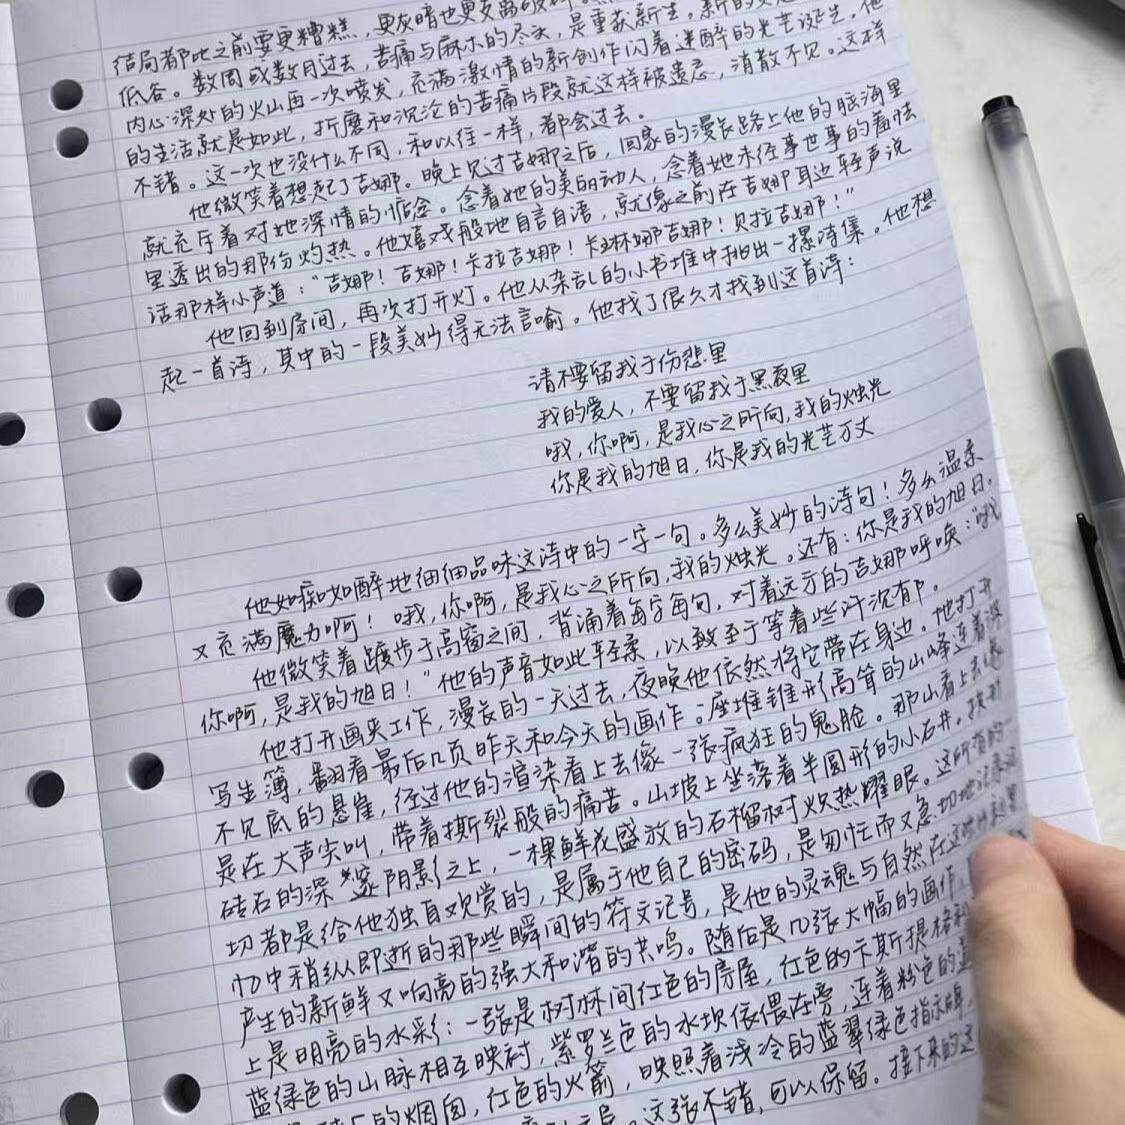 结局都比之前要更糟糕，更灰暗也更
低谷。数周或数月过去，苦痛与麻木的尽头，是重获新生。新的
内心深处的火山再一次喷发，充满激情的新创作闪着迷醉的光芒诞生。他
的生活就是如此，折磨和沉沦的苦痛片段就这样被遗忘，消散不见。这样
不错。这一次也没什么不同，和以往一样，都会过去。
他微笑着想起了吉娜。晚上见过吉娜之后，回家的漫长路上他的脑海里
就充斥着对她深情的惦念。念着她的美丽动人，念着她未经事世事的羞怯
里透出的那份灼热。他嬉戏般地自言自语，就像之前在吉娜耳边轻声说
话那样小声道：“吉娜！吉娜！卡拉吉娜！卡琳娜吉娜！贝拉吉娜！”
他回到房间，再次打开灯。他从杂乱的小书堆中抽出一摞诗集。他想
起一首诗，其中的一段美妙得无法言喻。他找了很久才找到这首诗：
请不要留我于伤悲里
我的爱人，不要留我于黑夜里
哦，你啊，是我心之所向，我的烛光
你是我的旭日，你是我的光芒万丈
他如痴如醉地细细品味这诗中的一字一句。多么美妙的诗句！多么温柔
又充满魔力啊！哦，你啊，是我心之所向，我的烛光。还有：你是我的旭日。
他微笑着踱步于高窗之间，背诵着每字每句，对着远方的吉娜呼唤：“哦
你啊，是我的旭日！”他的声音如此轻柔，以致至于等着些许沉郁。
他打开画夹工作，漫长的一天过去，夜晚他依然将它带在身边。他打开
写生簿，翻看最后几页昨天和今天的画作。座堆锥形高耸的山峰连着深
不见底的悬崖，经过他的渲染看上去像一张疯狂的鬼脸。那山看上去像
是在大声尖叫，带着撕裂般的痛苦。山坡上坐落着半圆形的小石井，拱形
砖石的深邃阴影之上，一棵鲜花盛放的石榴树炽热耀眼。这所有的一
切都是给他独自欣赏的，是属于他自己的密码，是匆忙而又急切地记录
忆中稍纵即逝的那些瞬间的符文记号，是他的灵魂与自然在这些时刻里
产生的新鲜又响亮的强大和谐的共鸣。随后是几张大幅的画作，
上是明亮的水彩：一张是树林间红色的房屋，红色的卡斯提格利
蓝绿色的山脉相互映衬，紫罗兰色的水坝依偎在旁，连着粉色的
的烟囱，红色的火箭，映照着浅冷的蓝翠绿色指示牌，
。这张不错，可以保留。接下来的这